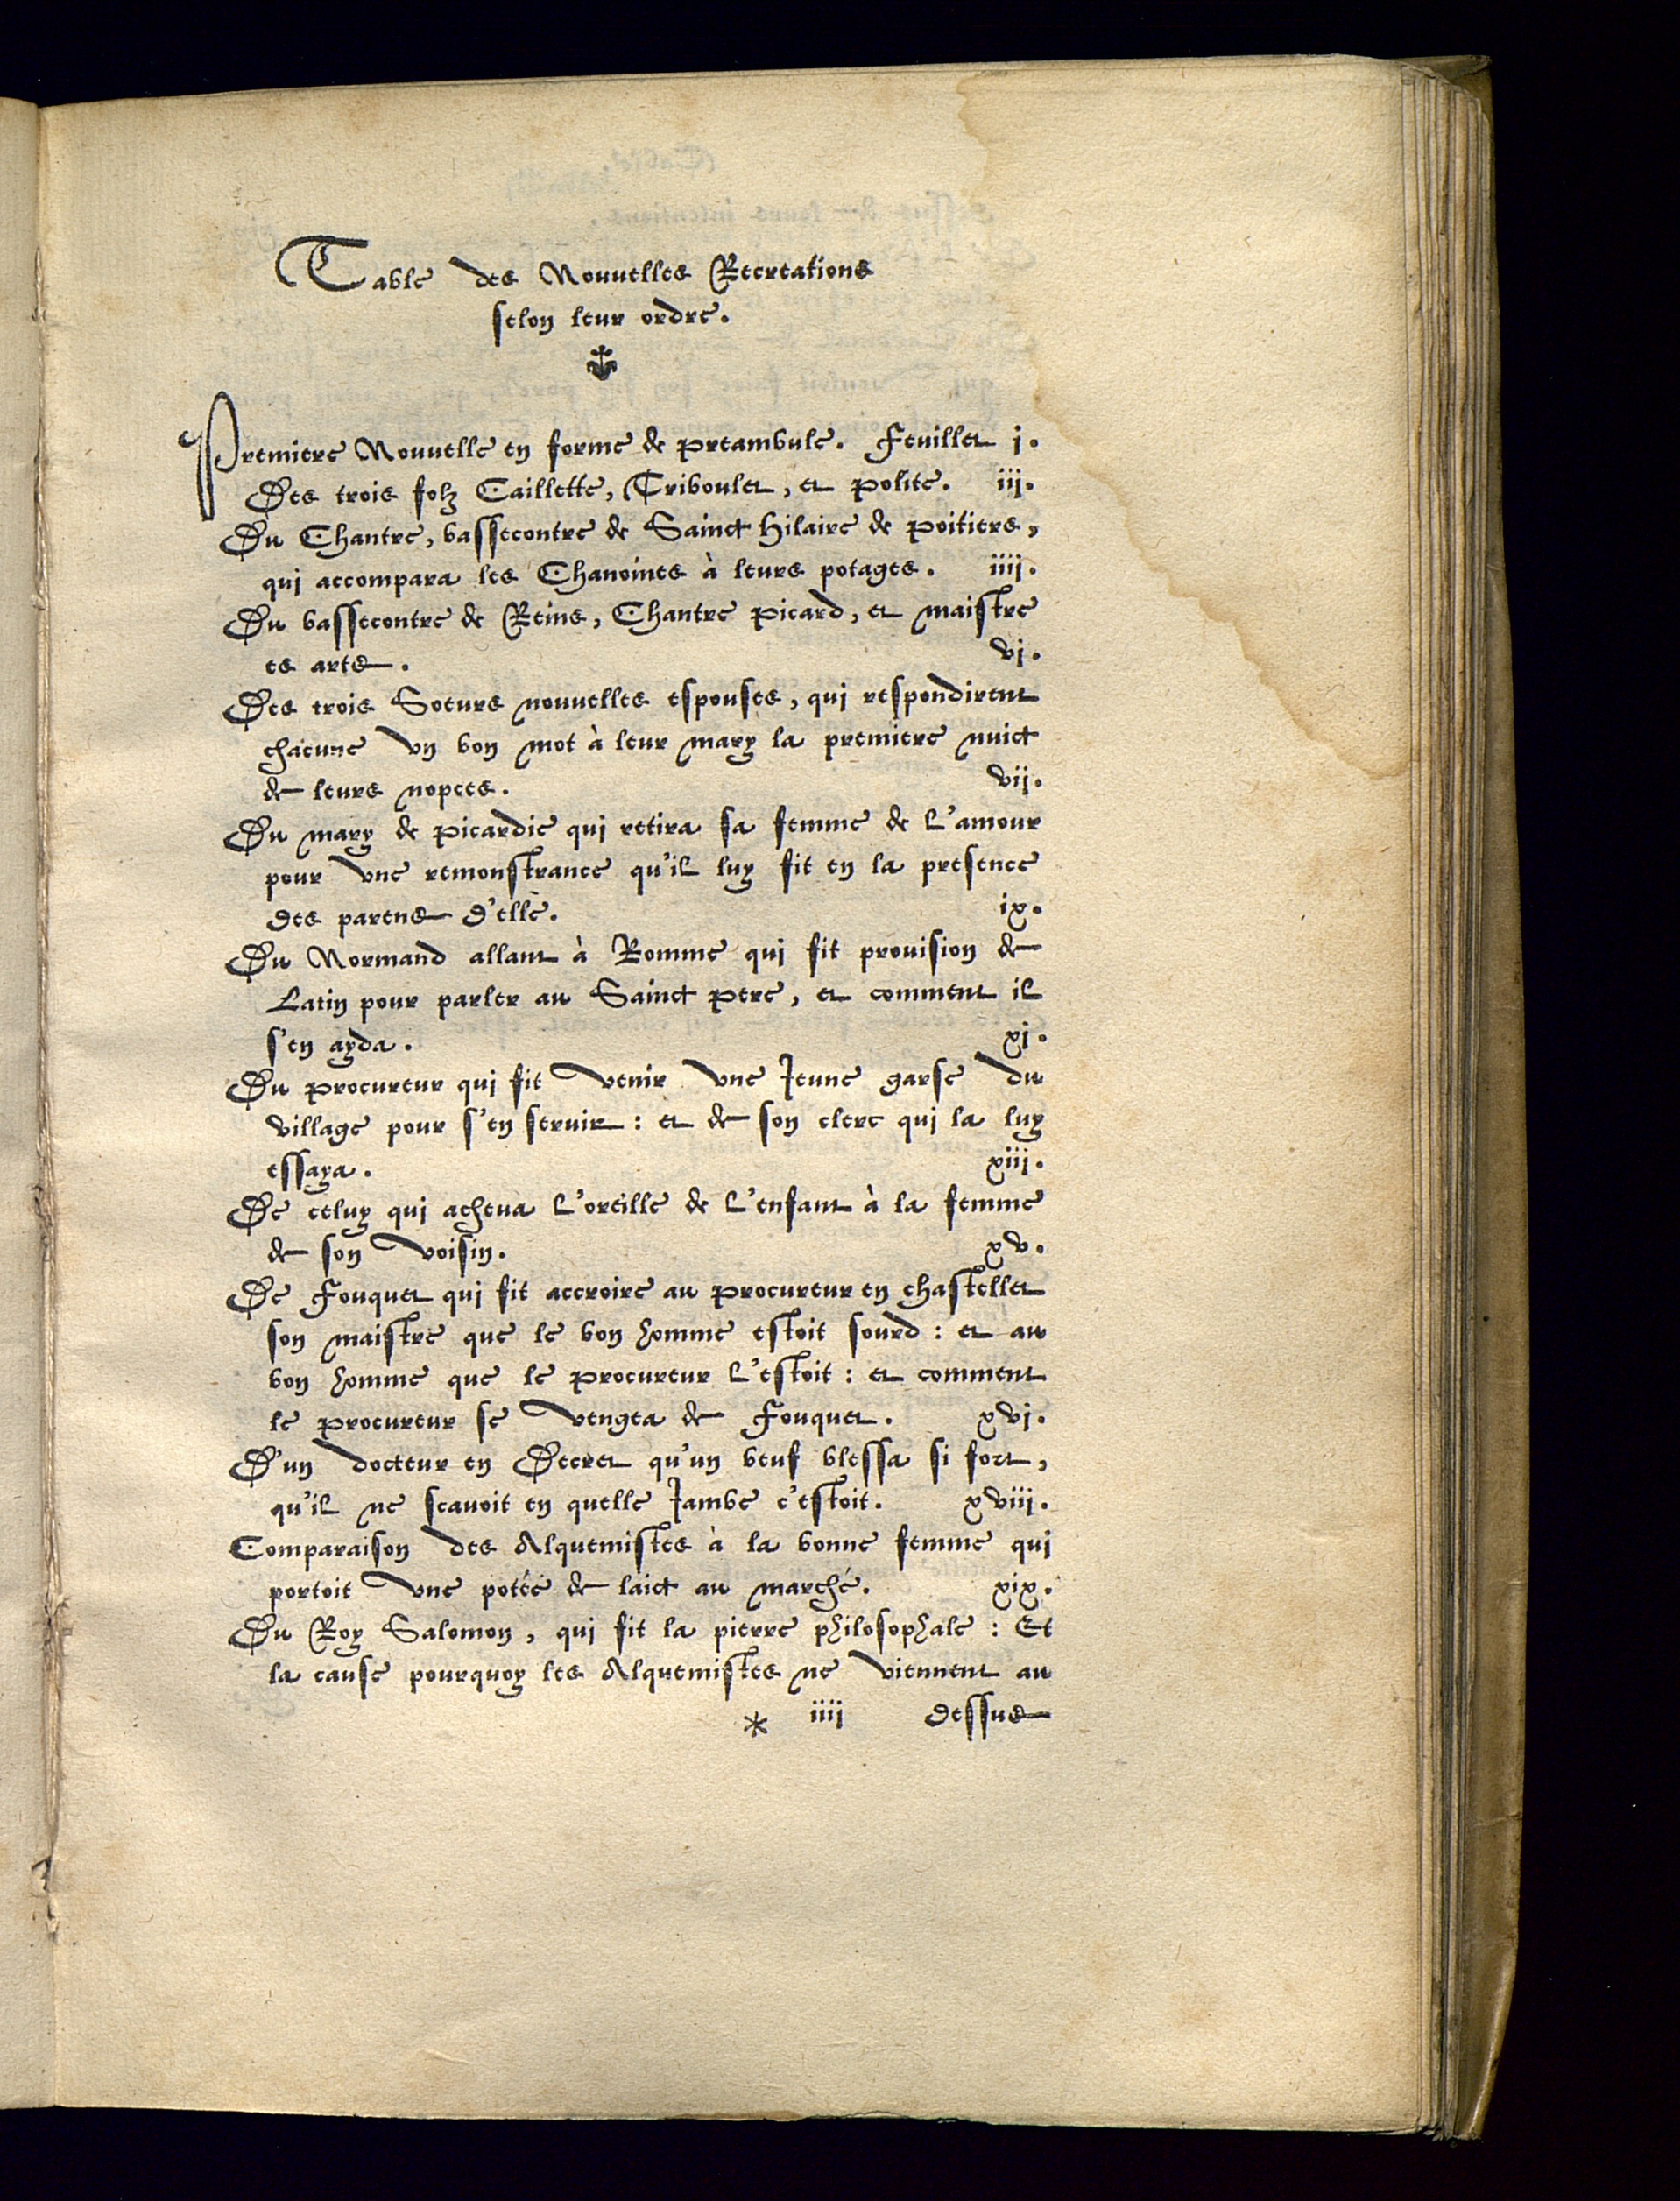 Table des Nouuelles Recreations
selon leur ordre.
Premiere Nouuelle en forme de preambule. Feuillet j.
Des trois folz Caillette, Triboulet, et Polite. iij.
Du Chantre, bassecontre de Sainct Hilaire de Poitiers,
qui accompara les Chanoines à leurs potages. iiij.
Du bassecontre de Reins, Chantre Picard, et maistre
es arts. vj.
Des trois Soeurs nouuelles espouses, qui respondirent
chacune vn bon mot à leur mary la premiere nuict
de leurs nopces. vij.
Du mary de Picardie qui retira sa femme de l'amour
pour vne remonstrance qu'il luy fit en la presence
des parens d'elle. ix.
Du Normand allant à Romme qui fit prouision de
Latin pour parler au Sainct Pere, et comment il
s'en ayda. xj.
Du Procureur qui fit venir vne Jeune garse du
village pour s'en seruir : et de son clerc qui la luy
essaya. xiij.
De celuy qui acheua l'oreille de l'enfant à la femme
de son voisin. xv.
De Fouquet qui fit accroire au Procureur en chastellet
son maistre que le bon homme estoit sourd : et au
bon homme que le Procureur l'estoit : et comment
le Procureur se vengea de Fouquet. xvj.
D'un docteur en Decret qu'un beuf blessa si fort,
qu'il ne scauoit en quelle Jambe c'estoit. xviij.
Comparaison des Alquemistes à la bonne femme qui
portoit vne potée de laict au marché. xix.
Du Roy Salomon, qui fit la pierre philosophale : Et
la cause pourquoy les Alquemistes ne viennent au
* iiij dessus